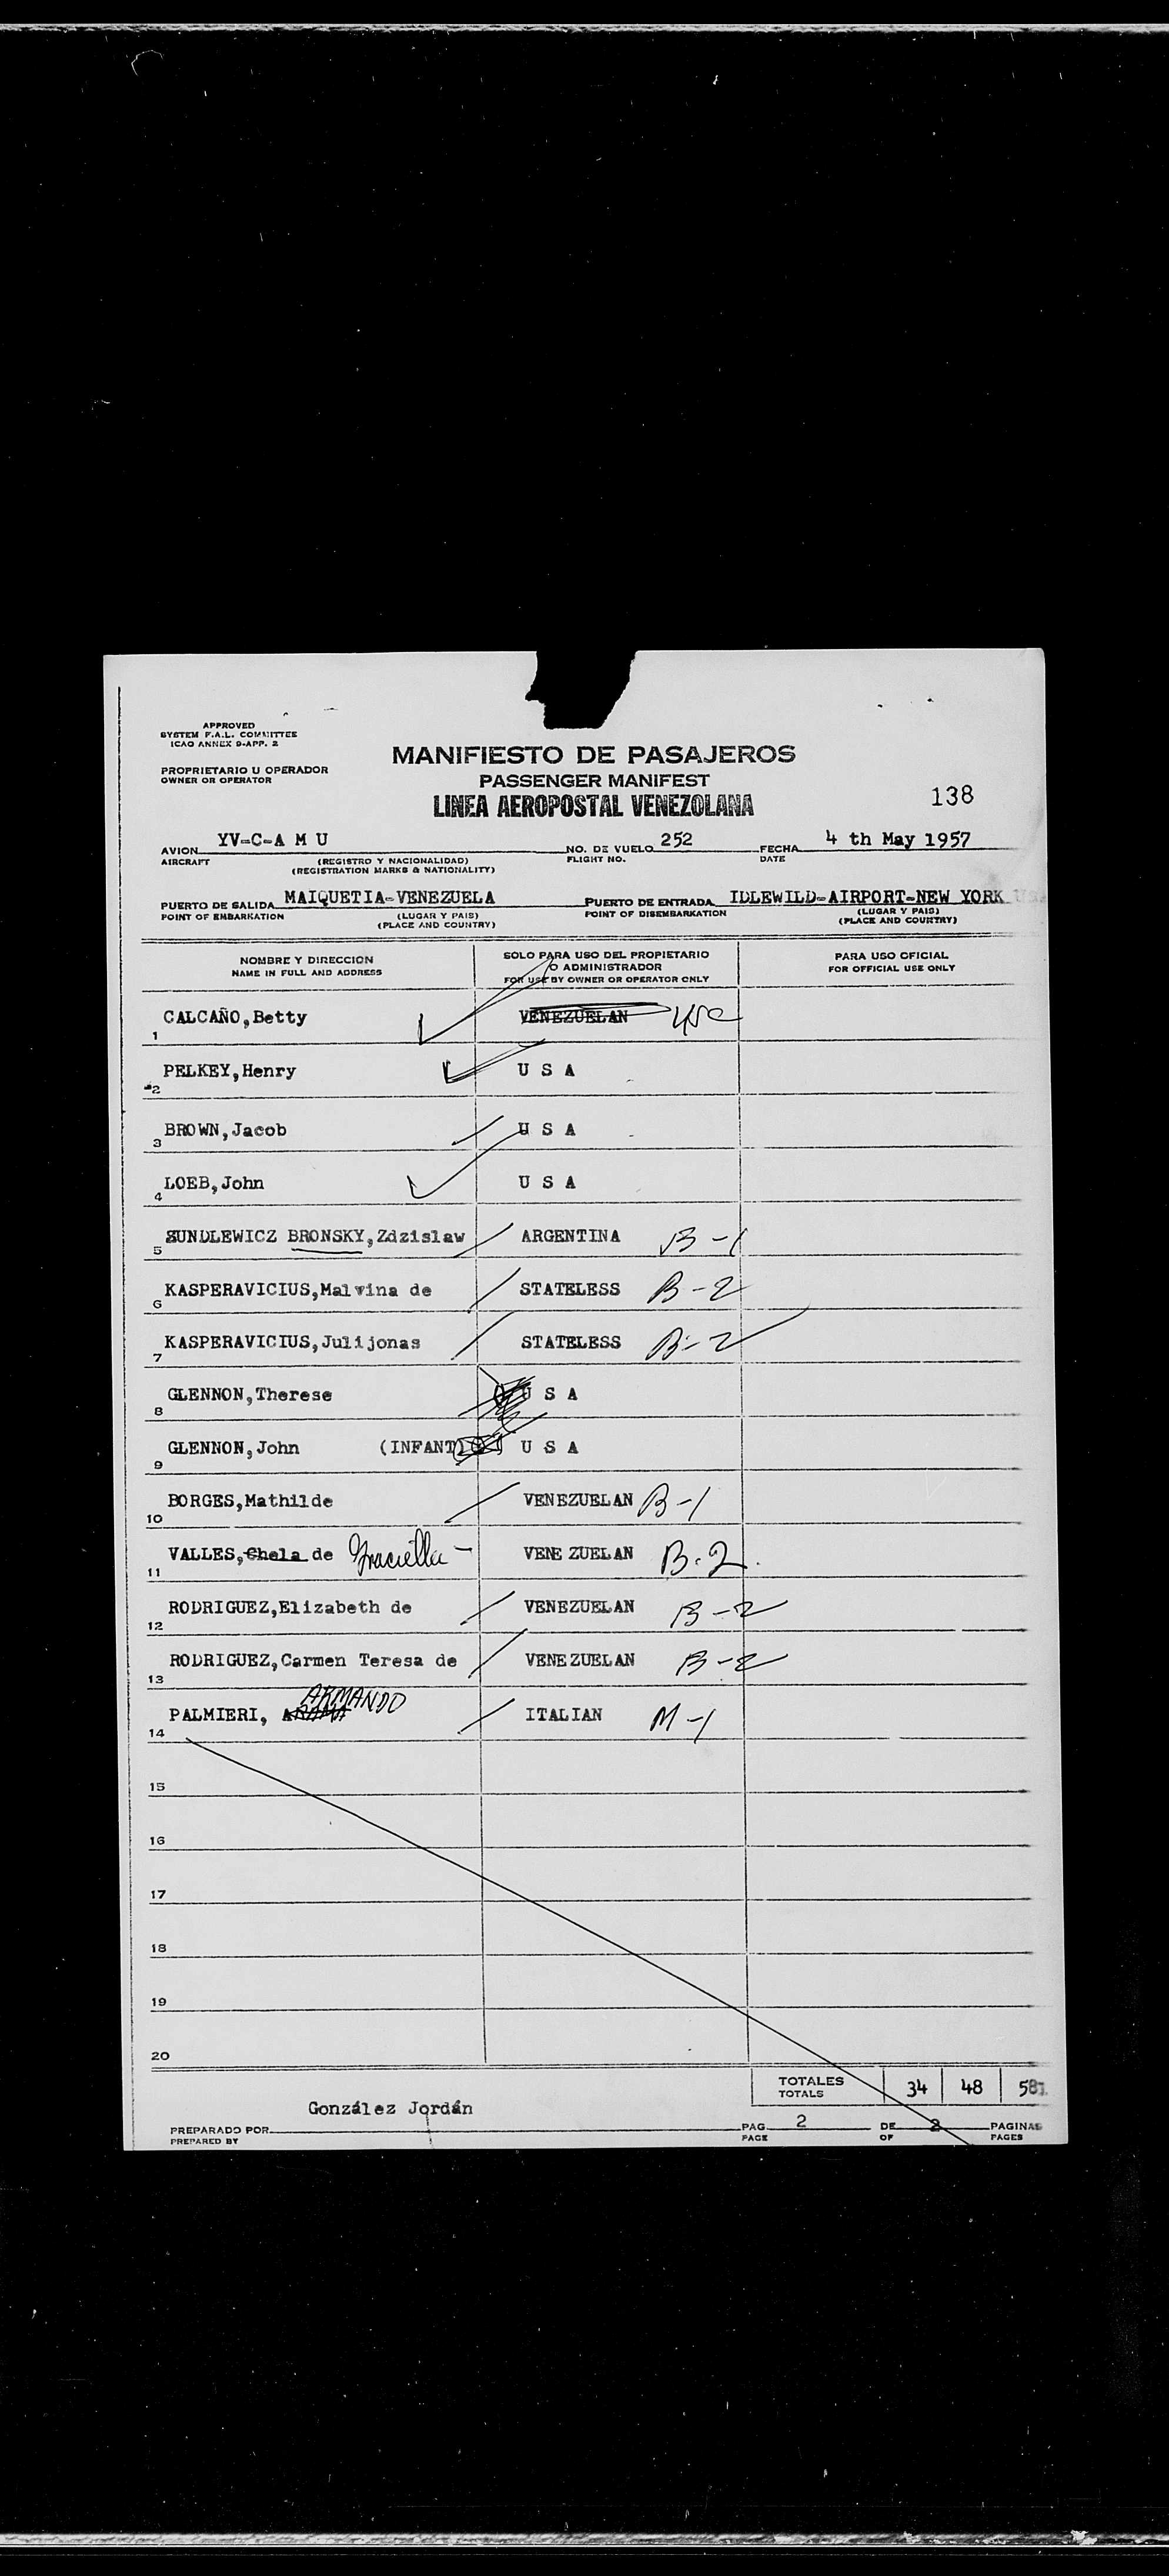 APPROVED
SYSTEM F.A.L. COMMITTEE
ICAO ANNEX 9-APP. 2
PROPRIETARIO U OPERADOR
OWNER OR OPERATOR
MANIFIESTO DE PASAJEROS
PASSENGER MANIFEST
LINEA AEROPOSTAL VENEZOLANA
138
AVION YV-C-A M U NO. DE VUELO 252 FECHA 4 th May 1957
AIRCRAFT (REGISTRO Y NACIONALIDAD) FLIGHT NO. DATE
(REGISTRATION MARKS & NATIONALITY)
PUERTO DE SALIDA MAIQUETIA-VENEZUELA PUERTO DE ENTRADA IDLEWILD-AIRPORT-NEW YORK
POINT OF EMBARKATION (LUGAR Y PAIS) POINT OF DISEMBARKATION (LUGAR Y PAIS)
(PLACE AND COUNTRY) (PLACE AND COUNTRY)
NOMBRE Y DIRECCION SOLO PARA USO DEL PROPIETARIO PARA USO OFICIAL
NAME IN FULL AND ADDRESS O ADMINISTRADOR FOR OFFICIAL USE ONLY
FOR USE BY OWNER OR OPERATOR ONLY
1 CALCAÑO,Betty VENEZUELAN USC
2 PELKEY,Henry U S A
3 BROWN,Jacob U S A
4 LOEB,John U S A
5 SUNDLEWICZ BRONSKY,Zdzislaw ARGENTINA B-1
6 KASPERAVICIUS,Malvina de STATELESS B-2
7 KASPERAVICIUS,Julijonas STATELESS B-2
8 GLENNON,Therese U S A
9 GLENNON,John (INFANT) U S A
10 BORGES,Mathilde VENEZUELAN B-1
11 VALLES,Chela de Graciella - VENEZUELAN B-2
12 RODRIGUEZ,Elizabeth de VENEZUELAN B-2
13 RODRIGUEZ,Carmen Teresa de VENEZUELAN B-2
14 PALMIERI, ARMANDO ITALIAN M-1
15
16
17
18
19
20
TOTALES 34 48
TOTALS
González Jordán
PREPARADO POR PAG. 2 DE 2 PAGINAS
PREPARED BY PAGE OF PAGES